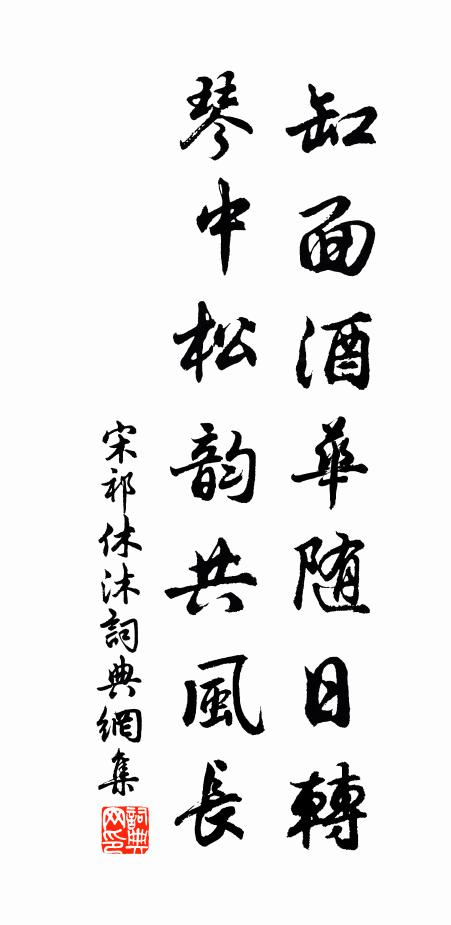 缸面酒華随日轉
琴中松韵共風長
宋祁休沐詞典網集
詞典网印